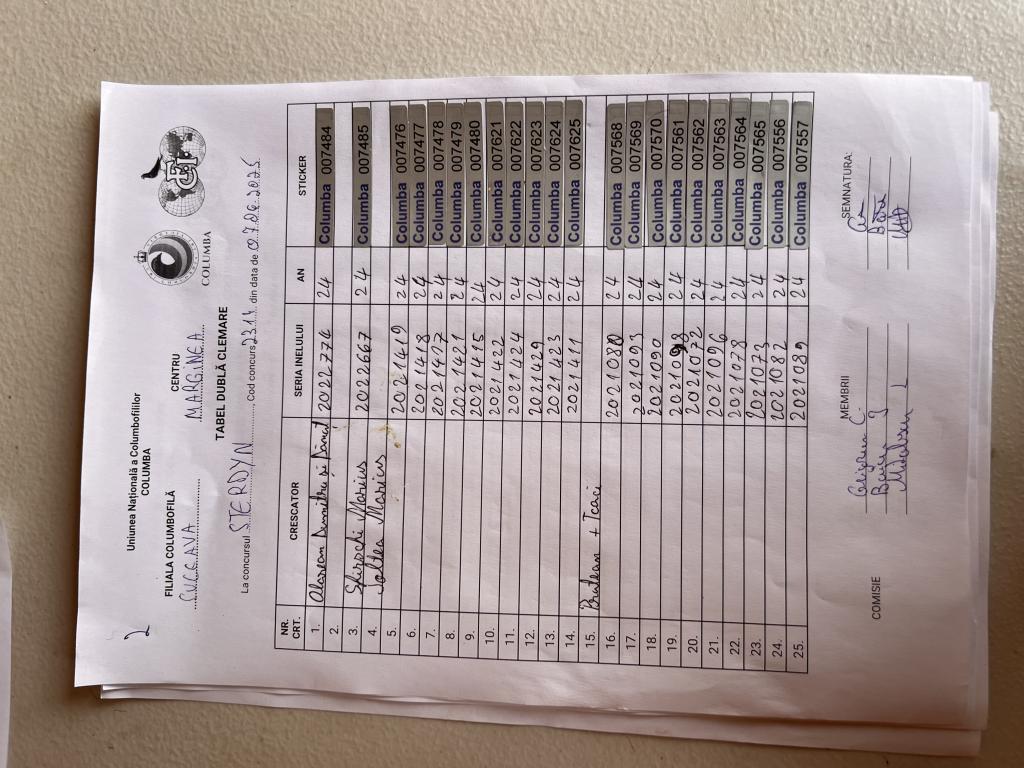 2
Uniunea Națională a Columbofililor
COLUMBA
FILIALA COLUMBOFILĂ
SUCEAVA
CENTRU
MARGINEA
COLUMBA
FCI
TABEL DUBLĂ CLEMARE
La concursul STERDYN Cod concurs 2314 din data de 07.06.2025
NR. CRT. CRESCATOR SERIA INELULUI AN STICKER
1. Olarean Dumitru și Ionut 2022774 24 Columba 007484
2.
3. Sfirochi Marius 2022667 24 Columba 007485
4. Marius
5. 2021419 24 Columba 007476
6. 2021418 24 Columba 007477
7. 2021427 24 Columba 007478
8. 2021421 24 Columba 007479
9. 2021415 24 Columba 007480
10. 2021422 24 Columba 007621
11. 2021424 24 Columba 007622
12. 2021429 24 Columba 007623
13. 2021423 24 Columba 007624
14. 2021411 24 Columba 007625
15. Brulean + Tcaci
16. 2021080 24 Columba 007568
17. 2021093 24 Columba 007569
18. 2021090 24 Columba 007570
19. 24 Columba 007561
20. 2021072 24 Columba 007562
21. 2021096 24 Columba 007563
22. 2021078 24 Columba 007564
23. 2021073 24 Columba 007565
24. 2021082 24 Columba 007556
25. 2021089 24 Columba 007557
COMISIE
MEMBRII
SEMNATURA: